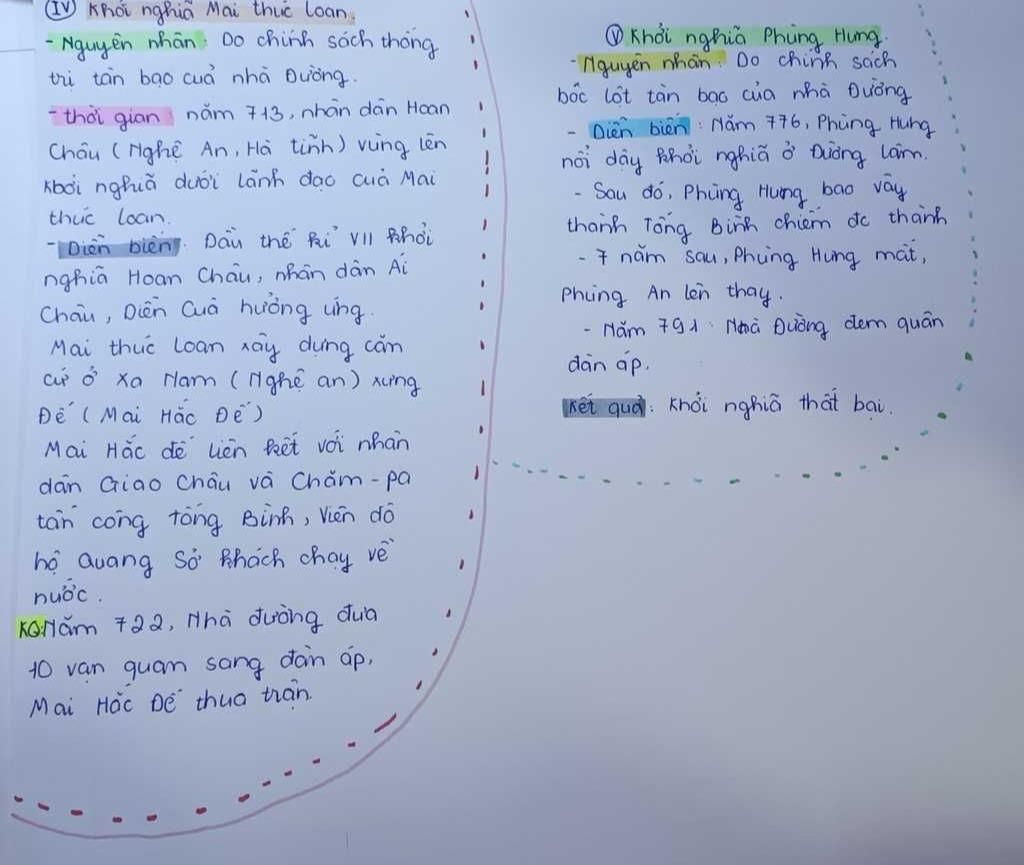 IV Khởi nghĩa Mai thúc Loan.
- Nguyên nhân: Do chính sách thống
trị tàn bạo cuả nhà Đường.
- thời gian: năm 713, nhân dân Hoan
Châu (Nghệ An, Hà tĩnh) vùng lên
khởi nghiã dưới lãnh đạo cuả Mai
thúc loan.
- Diễn biến: Đầu thế kỉ VII khởi
nghiã Hoan Châu, nhân dân Aí
Châu, Diễn Cuả hưởng ứng.
Mai thúc Loan xây dựng căn
cứ ở Xa Nam (Nghệ an) xưng
Đế (Mai Hắc Đế)
Mai Hắc đế liên kết với nhân
dân Giao Châu và Chăm-pa
tấn công tống Bình, Viên đô
hộ Quang Sở khách chạy về
nước.
KQ: Năm 722, Nhà đường đưa
10 vạn quan sang đàn áp,
Mai Hắc Đế thua trận.
V Khởi nghiã Phùng Hưng.
- Nguyên nhân: Do chính sách
bóc lột tàn bạo của nhà Đường
- Diễn biến: Năm 776, Phùng Hưng
nổi dậy khởi nghiã ở Đường lâm.
- Sau đó, Phùng Hưng bao vây
thành Tống Bình chiếm đc thành
- 7 năm sau, Phùng Hưng mất,
Phùng An lên thay.
- Năm 791: Nhà Đường đem quân
đàn áp.
Kết quả: Khởi nghiã thất bại.